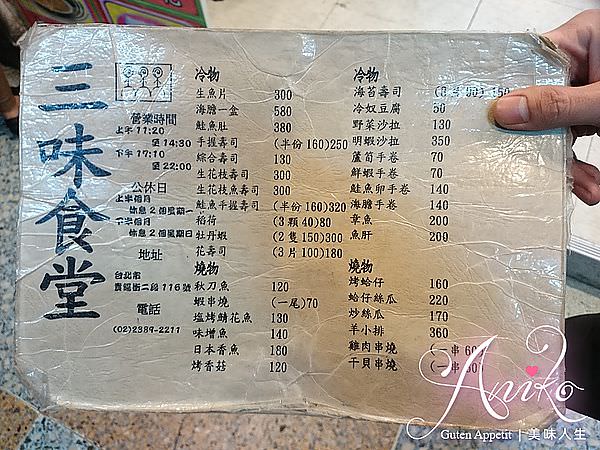 三味食堂
營業時間
上午11:20
至14:30
下午17:10
至22:00
公休日
上半個月
休息2個星期一
下半個月
休息2個星期日
地址
台北市
貴陽街二段116號
電話
(02)2389-2211
冷物
生魚片 300
海膽一盒 580
鮭魚肚 380
手握壽司 (半份160)250
綜合壽司 130
生花枝壽司 300
生花枝魚壽司 300
鮭魚手握壽司 (半份160)320
稻荷 (3顆40)80
牡丹蝦 (2隻150)300
花壽司 (3片100)180
燒物
秋刀魚 120
蝦串燒 (一尾)70
塩烤鯖花魚 130
味增魚 140
日本香魚 180
烤香菇 120
冷物
海苔壽司 150
冷奴豆腐 50
野菜沙拉 130
明蝦沙拉 350
蘆筍手卷 70
鮮蝦手卷 70
鮭魚卵手卷 140
海膽手卷 140
章魚 200
魚肝 200
燒物
烤蛤仔 160
蛤仔絲瓜 220
炒絲瓜 170
羊小排 360
雞肉串燒 (一串60)
干貝串燒 (一串
Aniko
Guten Appetit | 美味人生